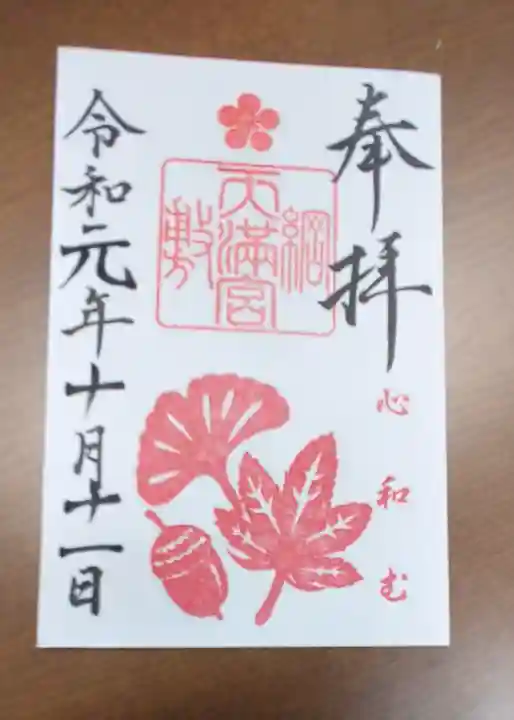 奉拝
心和む
綱
天満宮
敷
令和元年十月十一日